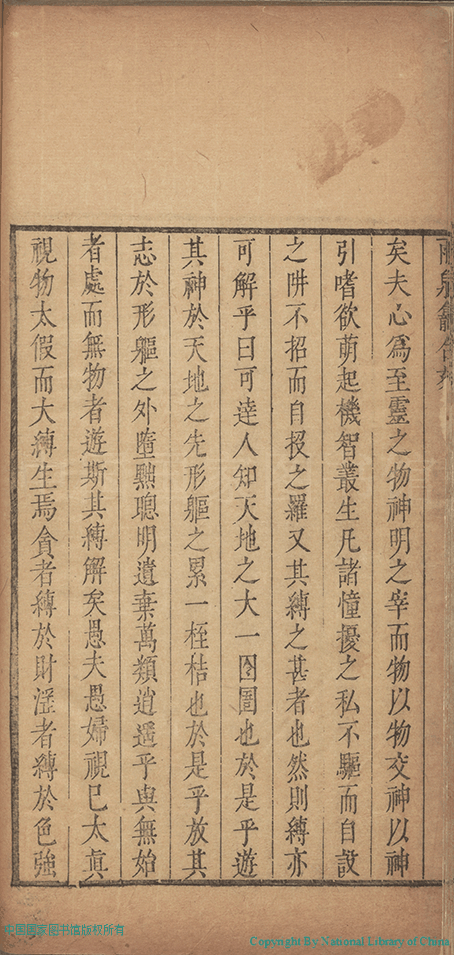 矣夫心爲至靈之物神明之宰而物以物交神以神
引嗜欲萌起機智叢生凡諸憧擾之私不驅而自設
之阱不招而自投之羅又其縛之甚者也然則縛亦
可解乎曰可達人知天地之大一囹圄也於是乎遊
其神於天地之先形軀之累一桎梏也於是乎放其
志於形軀之外墮黜聰明遺棄萬類逍遥乎與無始
者處而無物者遊斯其縛解矣愚夫愚婦視已太眞
視物太假而大縛生焉貪者縛於財淫者縛於色強
中国国家图书馆版权所有
Copyright By National Library of China